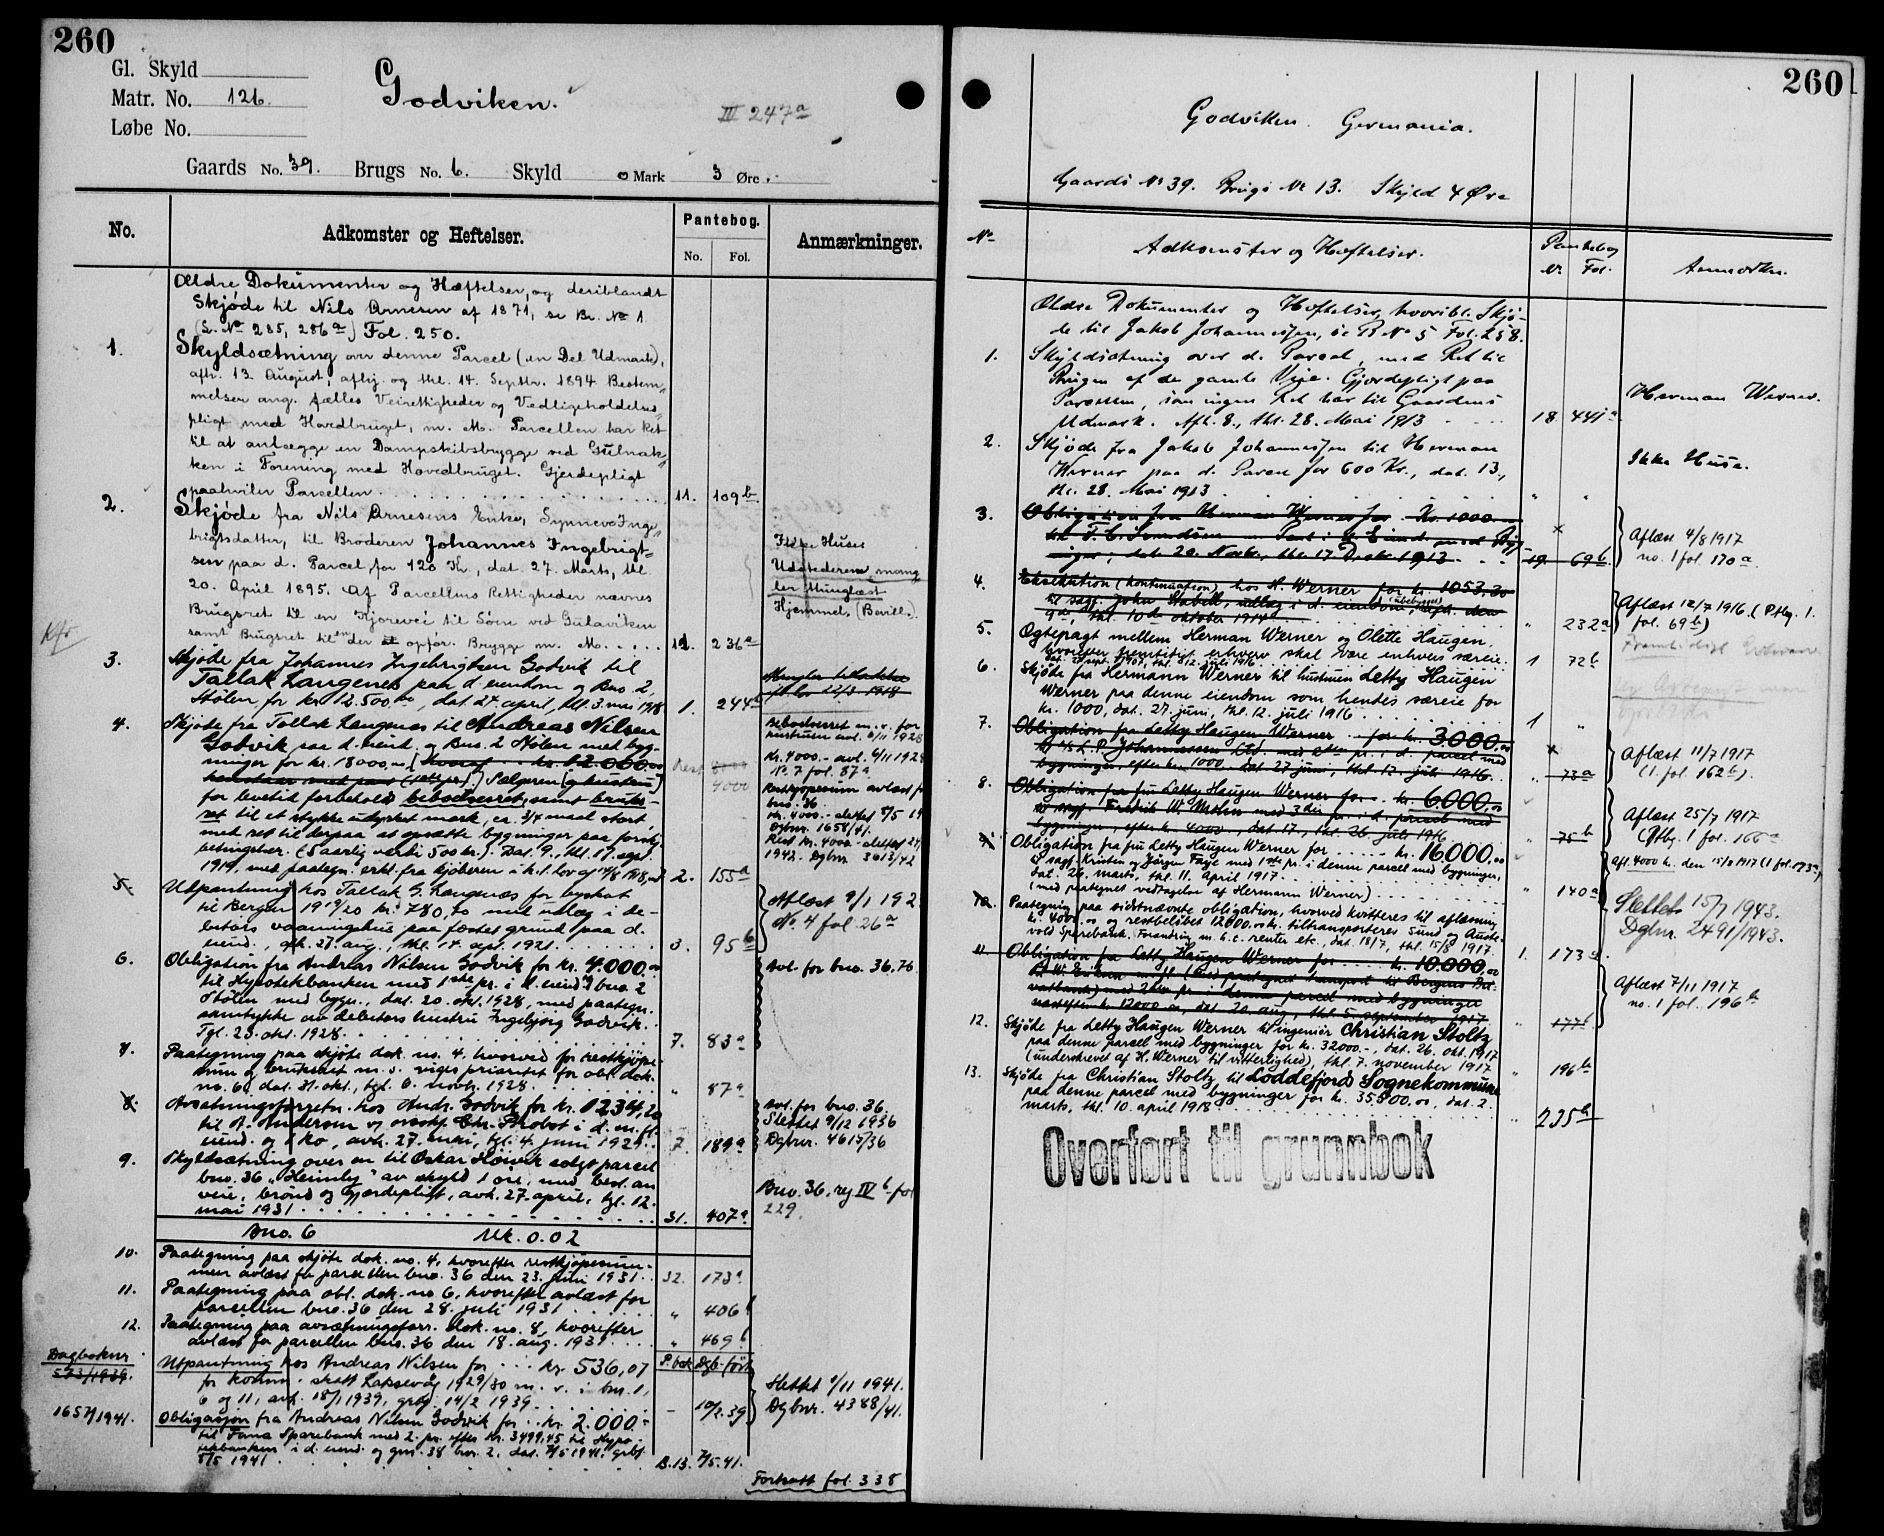 260
Gl. Skyld
Matr. No. 126.
Løbe No.
Godviken.
III 247a
Gaards No. 39. Brugs No. 6. Skyld 0 Mark 3 Øre.
No.
Adkomster og Heftelser.
Pantebog.
No. Fol.
Anmærkninger.
Ældre Dokumenter og Hæftelser, og deriblandt
Skjøde til Nils Arnesen af 1871, se Br. No 1
(L. No 285, 286a) Fol. 250.
1. Skyldsætning over denne Parcel (en Del Udmark),
afh. 13 August, afhj. og thl. 14. Septbr. 1894 Bestem-
melser ang. fælles Veirettigheder og Vedligeholdelses-
pligt med Hovedbruget, m. M. Parcellen har Ret
til at anlægge en Dampskibsbrygge ved
i Forening med Hovedbruget. Gjerdepligt
paahviler Parcellen. 11. 109b.
2. Skjøde fra Nils Arnesens Enke, Synneve Inge-
brigtsdatter, til Broderen Johannes Ingebrigt-
sen paa d. Parcel for 120 Kr., dat. 27. Marts, thl.
20. April 1895. Af Parcellens Rettigheder nævnes
Brugsret til en Kjørevei til Søen ved Gulaviken
samt Brugsret til en der opfør. Brygge m. M. 11. 236a
Ikke Huse.
Udstederen mang-
ler thinglæst
Hjemmel, (Bevill.)
3. Skjøde fra Johannes Ingebrigtsen Godvik til
Tallak Langenes paa d. eiendom og Bno 2,
Stølen for kr. 12.500,00, dat. 27. april, thl. 3. mai 1918 1. 244a
4. Skjøde fra Tallak Langenes til Andreas Nilsen
Godvik paa d. eiend. og Bno. 2 Stølen med byg-
ninger for kr. 18000,00 (hvoraf kr. 12.000,00
henstaar med pant (1ste pr.). Sælgeren (og hustru)
for levetid forbehold bebodsesret, samt bruks-
ret til et stykke udyrket mark, ca. 3/4 maal stort
med ret til derpaa at opsætte bygninger paa forsk.
betingelser. (5 aarlig værdi 500 kr.). Dat. 9., thl. 17. sept.
1919, med paategn. erkl. fra kjøberen i h. t. lov af 1918. 2. 155a
Rest 4000
Kr. 4000.- avl. 6/11 1928
No. 7 fol. 87a
Restkjøpesum avlæst for
bno. 36
kr. 4000.- slettet
Dgbnr. 1658/41.
Rest kr. 4000.- slettet
1942. Dgbnr. 3613/42
5. Utpantning hos Tallak G. Langenæs for byskat
til Bergen 1919/20 kr. 780,70 med utlæg i de-
bitors vaaningshus paa fæstet grund paa d.
eiend., afh. 27. aug., thl. 14. apr. 1921. 3. 95b
Aflæst 9/1 192
No. 4 fol. 26a
6. Obligation fra Andreas Nilsen Godvik for kr. 4.000,00
til Hypotekbanken med 1ste pr. i d. eiend. og bno. 2
Stølen med bygn., dat. 20. okt. 1928, med paategn.
samtykke av debitors hustru Ingebjørg Godvik.
Tgl. 23. okt. 1928. 7. 83a
Avl. for bno. 36, 76
7. Paategning paa skjøte dok. no. 4, hvorved for restkjøpe-
sum og bruksret m. v. viges prioritet for obl. dok.
no. 6, dat. 31. okt., tgl. 6. novbr. 1928. " 87a
8. Avsetningsforretn. hos Andr. Godvik for kr. 1234,20
til A. Andersen og i d. m. fl.
eiend. og 1 ko, avh. 27. mai, tgl. 4. juni 1929. 7. 189a
Avl. for bno. 36.
Slettet 9/12 1936
Dgbnr. 4615/36
9. Skyldsætning over en til Oskar Høivik solgt parcel
bno. 36 "Heimly" av skyld 1 øre, med best. an
veie, brønd og gjærdeplikt, avh. 27. april, tgl. 12.
mai 1931. 31. 407a
Bno. 36, reg IV b fol
229.
Bno. 6 Mk. 0.02
10. Paategning paa skjøte dok. no. 4, hvorefter restkjøpesum-
men avlæst fr. parcellen bno. 36 den 23. juni 1931. 32. 173a
11. Paategning paa obl. dok. no 6, hvorefter avlæst for
parcellen bno. 36 den 28. juli 1931. " 406b
12. Paategning paa avsætningsforr. dok. no. 8, hvorefter
avlæst for parcellen bno. 36 den 18. aug. 1931. " 469b
Dagboknr P. bok Dgb. ført
573/1939. Utpantning hos Andreas Nilsen for kr 536,07
for komm. skatt Laksevåg 1929/30 m. v. i bnr. 1,
6 og 11, avh. 18/1 1939, grbf. 14/2 1939. - 10/2.39
Slettet 1/11 1941.
Dgbnr. 4388/41.
1657/1941. Obligasjon fra Andreas Nilsen Godvik for kr. 2.000.-
til Fana Sparebank med 2. pr. efter kr. 3499,45 til Hypo-
tekbanken i d. eiend. og gnr. 38 bnr. 2, dat. 7/5 1941, grbf.
8/5 1941. B.13. 7/5.41.
Fortsatt fol. 338
260
Godviken. Germania.
Gaards No 39. Brugs No 13. Skyld 4 Øre
No
Adkomster og Heftelser.
Pantebog
Nr. Fol.
Anmærkn.
Ældre Dokumenter og Heftelser, hvoribl. Skjø-
de til Jakob Johannessen, se B No 5 Fol. 258.
1. Skyldsætning over d. Parcel, med Ret til
Brugen af de gamle Veie. Gjerdepligt paa
Parcellen, som ingen Ret har til Gaardens
Udmark. Afh. 8., thl. 28. Mai 1913 18. 441a
Herman Werner.
2. Skjøde fra Jakob Johannessen til Herman
Werner paa d. Parcel for 600 Kr., dat. 13.,
thl. 28. Mai 1913 " "
Ikke Huse.
3. Obligation fra Herman Werner for Kr. 1000
med Byg-
ninger, dat. 20. Novbr., thl. 17 Decbr 1913 19. 69b.
Aflæst 4/8 1917
no. 1 fol. 170a
4. Eksekution (kontinuation) hos H. Werner for kr. 1053,30
til sagf. John Stabell, utlæg i d. eiendom (ubebygget), afh. den
9de, thl. 10de oktober 1914 " 232a
Aflæst 12/7 1916. (Ptbg. 1.
fol. 69b)
5. Egtepagt mellem Herman Werner og Olette Haugen,
hvorefter fremtidigt erhverv skal være enhvers særeie.
Dat. sept. 1907, thl. 12. juli 1916 1 72b
6. Skjøde fra Hermann Werner til hustruen Letty Haugen
Werner paa denne eiendom som hendes særeie for
kr. 1000, dat. 27. juni, thl. 12. juli 1916 1 "
7. Obligation fra Letty Haugen Werner for kr. 3000,00
til A/S L. P. Johannessen pr. i d. parcel med
bygninger, efter kr. 1000. dat 27 juni, thl. 12. juli 1916. " 73a
Aflæst 11/7 1917
(1. fol. 162b).
8. Obligation fra fru Letty Haugen Werner for kr. 6000,00
til sagf. Fredrik W. med 3die pr. i d. parcel med
bygninger, efter kr. 4000, dat 17., thl. 26. juli 1916 " 75b
Aflæst 25/7 1917
(Ptbg. 1 fol. 166a
9. Obligation fra fru Letty Haugen Werner for kr. 16.000,00
til sagf. Kristen og Jørgen Faye med 1ste pr. i denne parcel med bygninger,
dat. 26. marts, thl. 11. april 1917
(med paategnet vedtagelse af Hermann Werner) " 140a
Afl. 4000 kr. den 15/8 1917 (1 fol. 173a)
10. Paategning paa sidstnævnte obligation, hvorved kvitteres til aflæsning
kr. 4000,00 og restbeløbet 12000,00 kr. tiltransporteres Sund og Auste-
vold Sparebank. Forandring m. h. t. renter etc., dat. 18/7, thl. 15/8 1917 1. 173a
Slettet 15/7 1943.
Dgbnr. 2491/1943.
11. Obligation fra Letty Haugen Werner for kr. 10.000,00
til W. Eriksen transport til Bergens Pri-
vatbank) med 2den pr. i denne parcel med bygninger
næstefter kr. 12000,00, dat 20. aug., thl. 5. september 1917 " 177b
Aflæst 7/11 1917
no. 1 fol. 196b
12. Skjøde fra Letty Haugen Werner til ingeniør Christian Stoltz
paa denne parcel med bygninger for kr. 32000.-, dat. 26. okt. 1917
(underskrevet af H. Werner til vitterlighed), thl. 7. november 1917 " 196b
13. Skjøde fra Christian Stoltz til Loddefjord Sognekommune
paa denne parcel med bygninger for kr. 35800,00, dat. 2.
marts, thl. 10. april 1918 " 235b
Overført til grunnbok